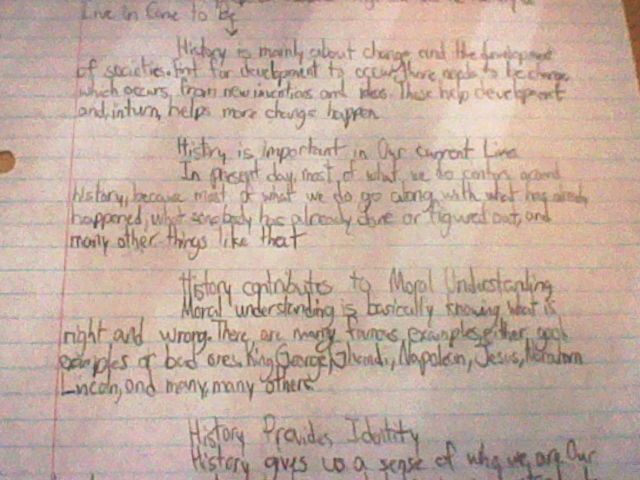 Live in Came to Be
History is mainly about change and the development
of societies. But for development to occur, there needs to be change,
which occurs from new inventions and ideas. These help development
and, in turn, helps more change happen.
History is important in Our current Lives
In present day, most of what we do centers around
history, because most of what we do go along with what has already
happened, what somebody has already done or figured out, and
many other things like that
History contributes to Moral Understanding
Moral understanding is basically knowing what is
right and wrong. There are many famous examples, either good
examples or bad ones. King George, Ghandi, Napolean, Jesus,
Lincoln, and many, many others.
History Provides Idenitity
History gives us a sense of who we are. Our